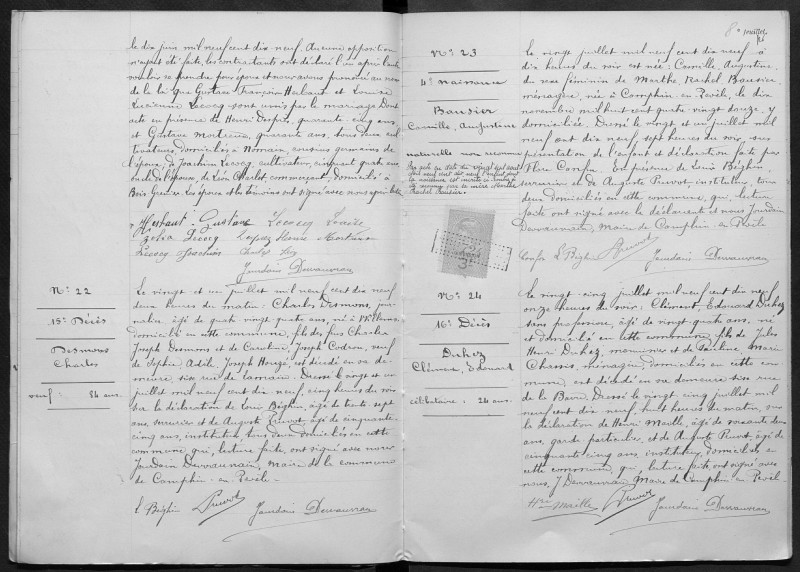 le dix juin mil neuf cent dix neuf. Aucune opposition
n'ayant été faite, les contractants ont déclaré l'un après l'autre
vouloir se prendre pour époux et nous avons prononcé au nom
de la loi que Gustave François Herbaut et Louise
Lucienne Lecocq sont unis par le mariage. Dont
acte en présence de Henri Despres, quarante cinq ans,
et Gustave Mortreux, quarante ans, tous deux cul
tivateurs, domiciliés à Nomain, cousins germains de
l'époux, d'Joachim Lecocq, cultivateur, cinquante quatre ans
oncle de l'épouse, de Léon Charlet commerçant domiciliés à
Bois Grenier. Les époux et les témoins ont signé avec nous après lecture
Herbaut Gustave Lecocq Louise
Zélia Lecocq Mortreux
Lecocq Joachim Charlet Léon
Jourdain Dewauvrau
N° 22
15e Décès
Desmons
Charles
veuf : 84 ans.
Le vingt et un juillet mil neuf cent dix neuf
deux heures du matin : Charles Desmons, jour
nalier, âgé de quatre vingt quatre ans, né à
domicilié en cette commune, fils des feus Charles
Joseph Desmons et de Caroline Joseph Codron, veuf
de Sophie Adèle Joseph Houzé, est décédé en sa de
meure, sise rue de Camain. Dressé le vingt et un
juillet mil neuf cent dix neuf, cinq heures du soir
sur la déclaration de Louis Béghin, âgé de trente sept
ans, serrurier et de Auguste Pruvot, âgé de cinquante
cinq ans, instituteur, tous deux domiciliés en cette
commune qui, lecture faite, ont signé avec nous
Jourdain Dewauvrain, Maire de la commune
de Camphin-en-Pévèle.
L Béghin Pruvot Jourdain Dewauvrau
8e feuillet
N° 23
4e naissance
Bausier
Camille, Augustine
naturelle non reconnue
Le vingt juillet mil neuf cent dix neuf à
dix heures du soir est née : Camille, Augustine,
du sexe féminin de Marthe, Rachel Bausier,
ménagère, née à Camphin en Pévèle, le dix
novembre mil huit cent quatre vingt douze, y
domiciliée. Dressé le vingt et un juillet mil
neuf cent dix neuf, sept heures du soir, sur
présentation de l'enfant et déclaration faite par
Flore Confa. En présence de Louis Béghin,
serrurier et de Auguste Pruvot instituteur, tous
deux domiciliés en cette commune, qui, lecture
faite ont signé avec la déclarante et nous Jourdain
Dewauvrain, Maire de Camphin en Pévèle
Confa L Béghin Pruvot
Jourdain Dewauvrau
N° 24
16e Décès
Duhez
Clément, Edouard
célibataire : 24 ans.
Le vingt-cinq juillet mil neuf cent dix neuf
onze heures du soir : Clément, Edouard Duhez
sans profession, âgé de vingt quatre ans, né
et domicilié en cette commune, fils de Jules
Henri Duhez, menuisier et de Pauline, Marie
ménagère, domiciliés en cette com
mune, est décédé en sa demeure sise rue
de la Barre. Dressé le vingt cinq juillet mil
neuf cent dix neuf, huit heures du matin, sur
la déclaration de Henri Maille, âgé de soixante deux
ans, garde particulier, et de Auguste Pruvot, âgé de
cinquante cinq ans, instituteur, domiciliés en
cette commune qui, lecture faite, ont signé avec
nous, J Dewauvrain Maire de Camphin en Pévèle.
Hri Maille Pruvot
Jourdain Dewauvrau